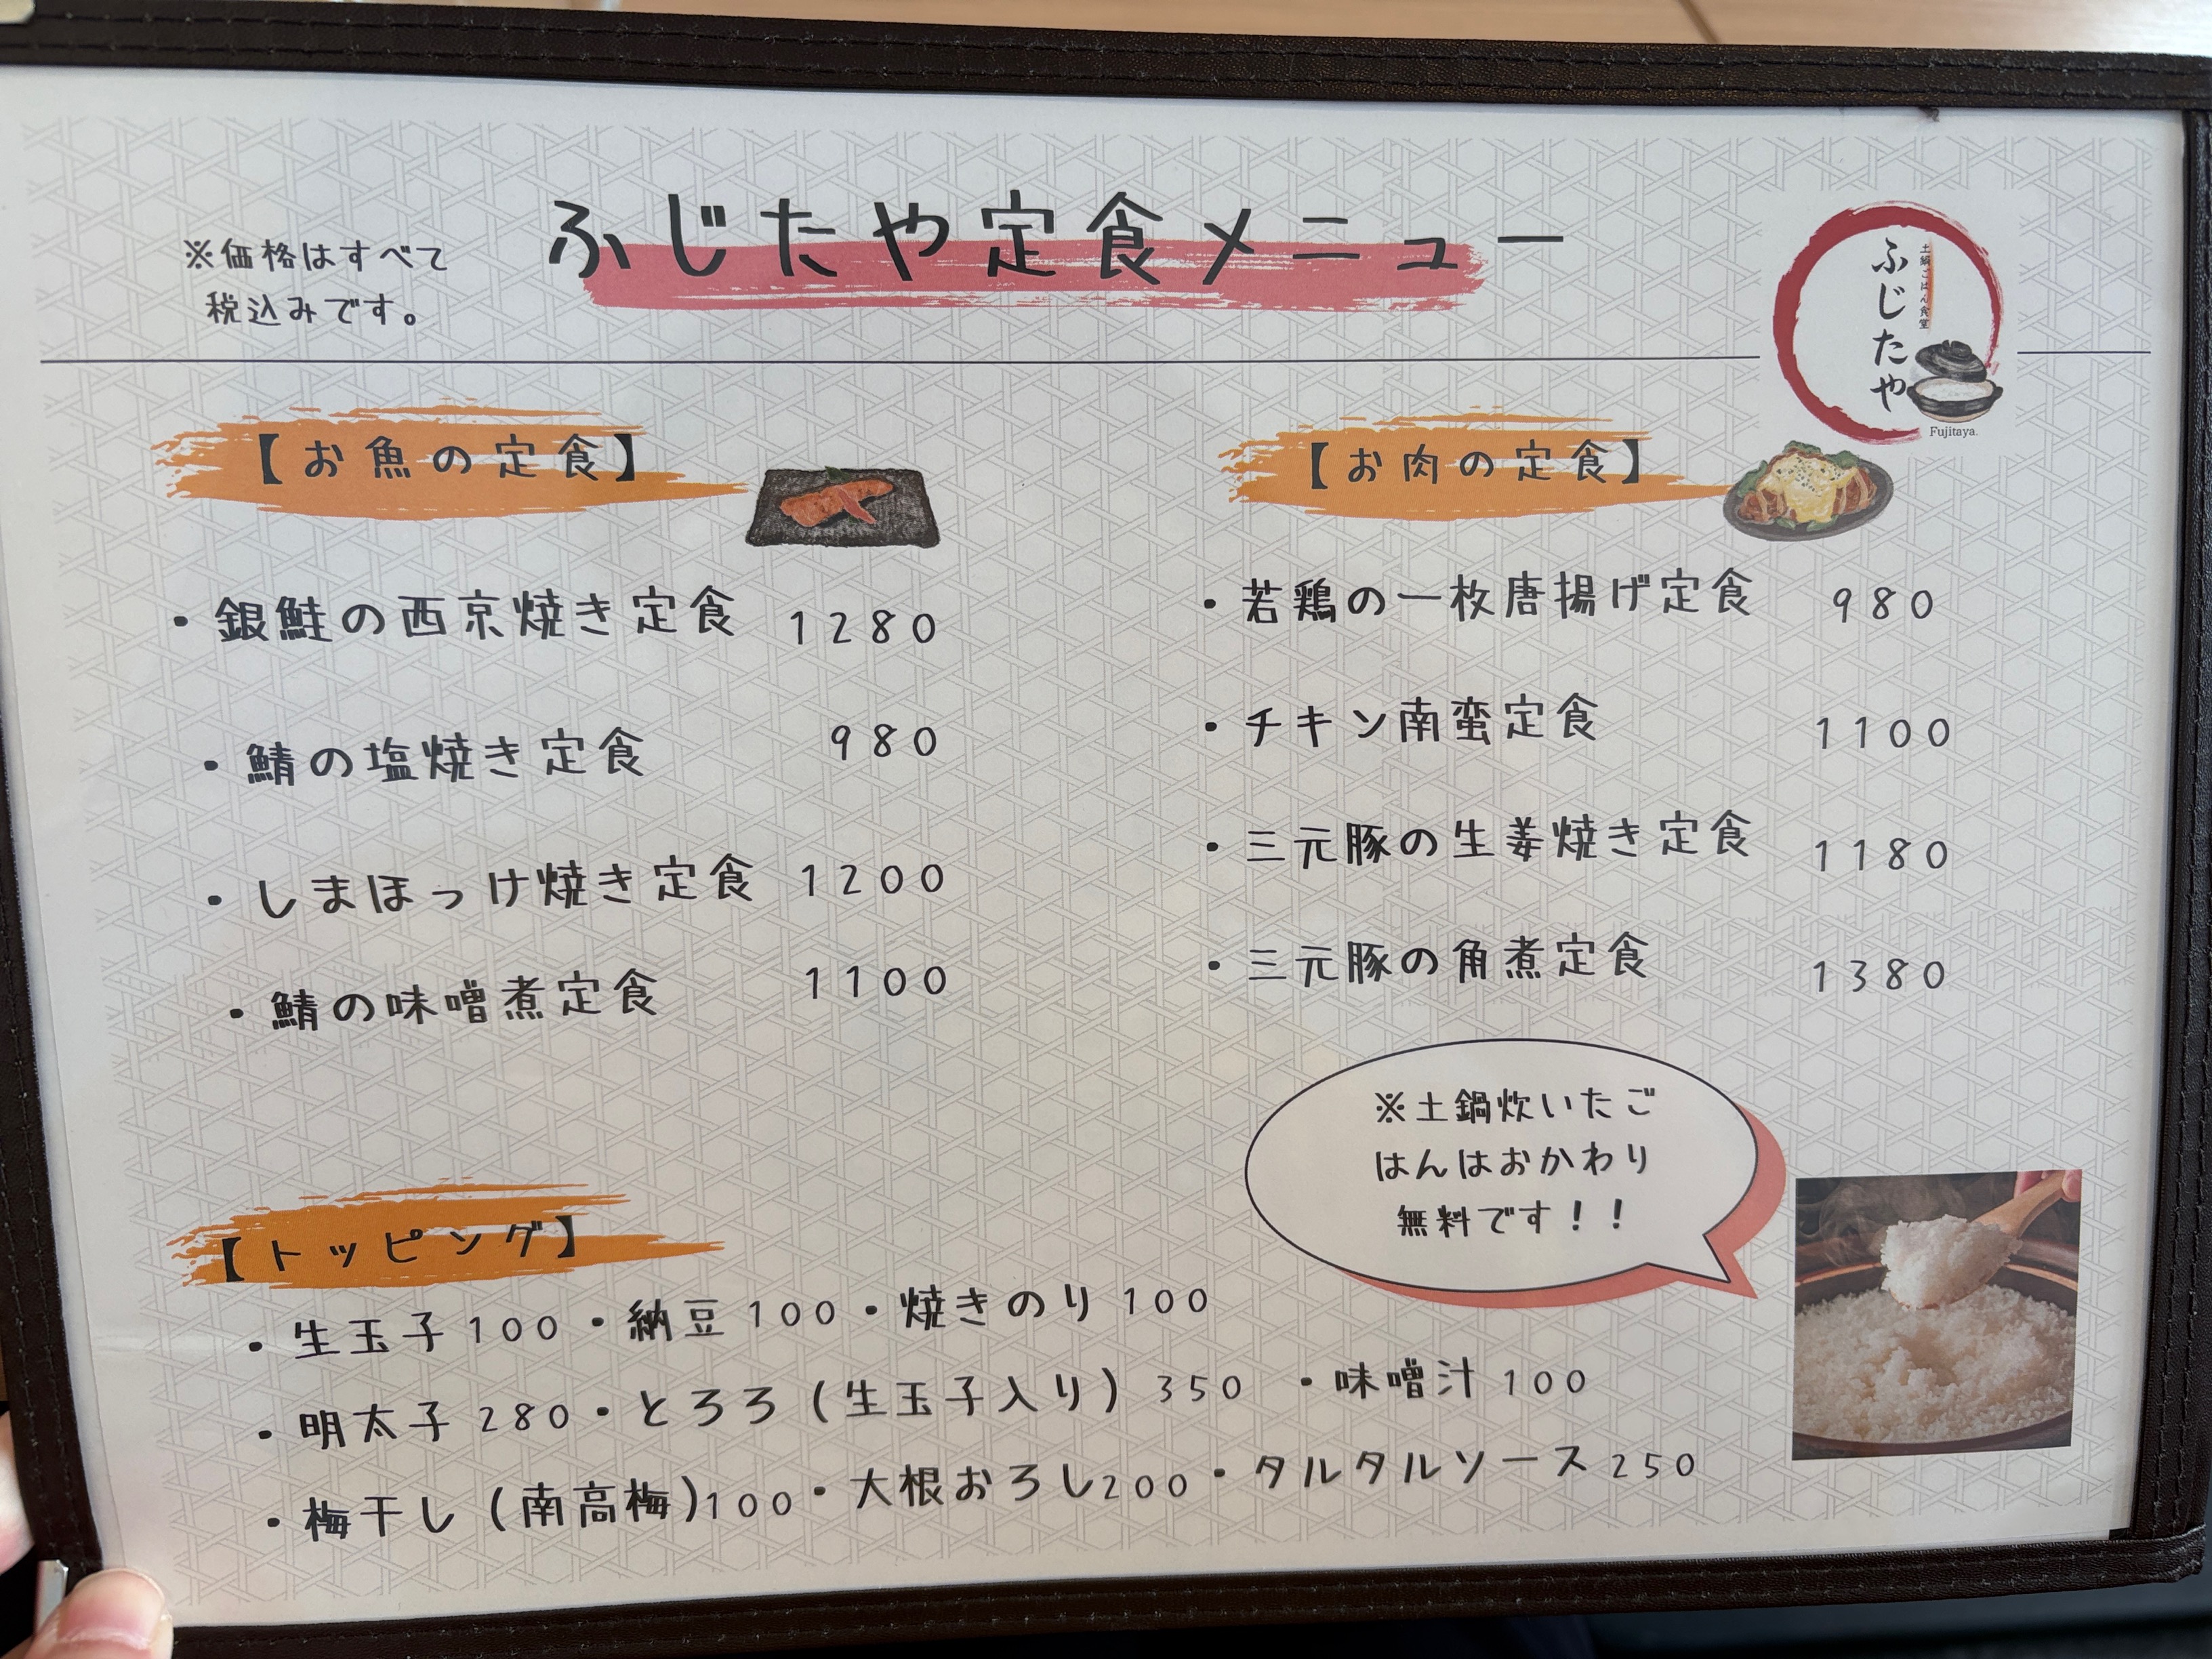 ふじたや定食メニュー
※価格はすべて
税込みです。
土鍋ごはん食堂
ふじたや
Fujitaya.
【お魚の定食】
・銀鮭の西京焼き定食 1280
・鯖の塩焼き定食 980
・しまほっけ焼き定食 1200
・鯖の味噌煮定食 1100
【お肉の定食】
・若鶏の一枚唐揚げ定食 980
・チキン南蛮定食 1100
・三元豚の生姜焼き定食 1180
・三元豚の角煮定食 1380
※土鍋炊いたご
はんはおかわり
無料です！！
【トッピング】
・生玉子100・納豆100・焼きのり100
・明太子280・とろろ(生玉子入り)350 ・味噌汁100
・梅干し(南高梅)100・大根おろし200・タルタルソース250